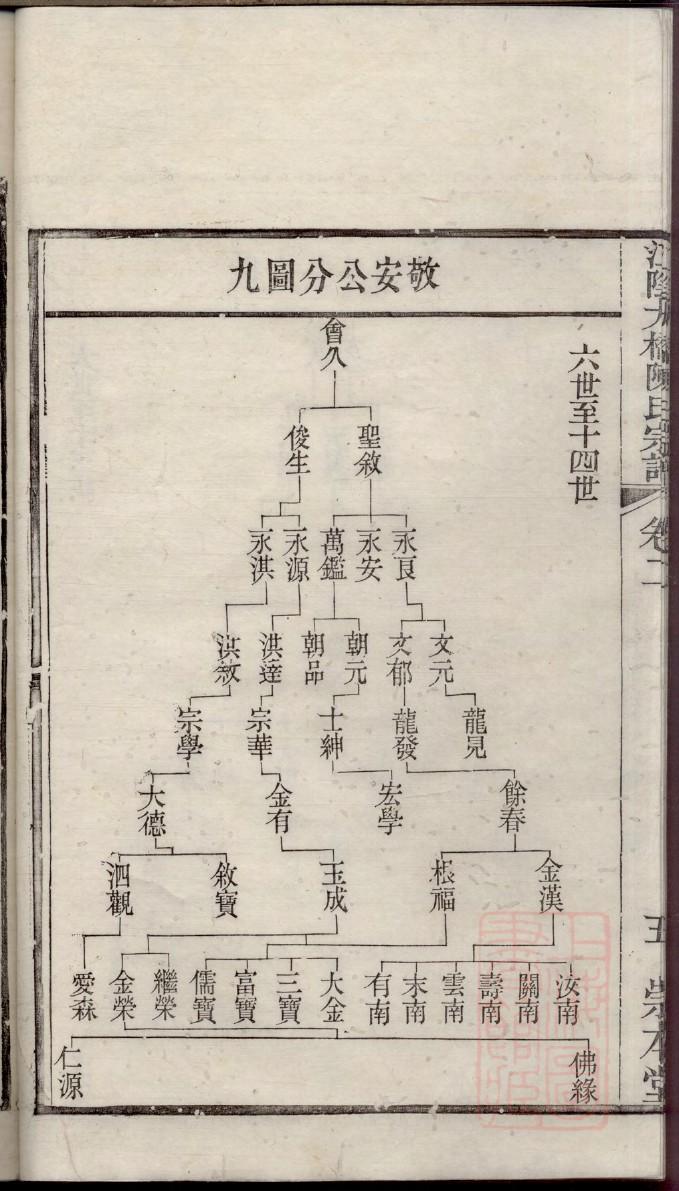 敬安公分圖九
六世至十四世
會久
聖敘 俊生
永良 永安 萬鑑 永源 永洪
文元 文郁 朝元 朝品 洪達 洪敘
龍見 龍發 士紳 宗華 宗學
餘春 宏學 金有 大德
金漢 根福 玉成 敘寶 泗觀
汝南 關南 壽南 雲南 末南 有南 大金 三寶 富寶 儒寶 繼榮 金榮 愛森
佛緣 仁源
陳氏宗譜 卷二
五 崇本堂